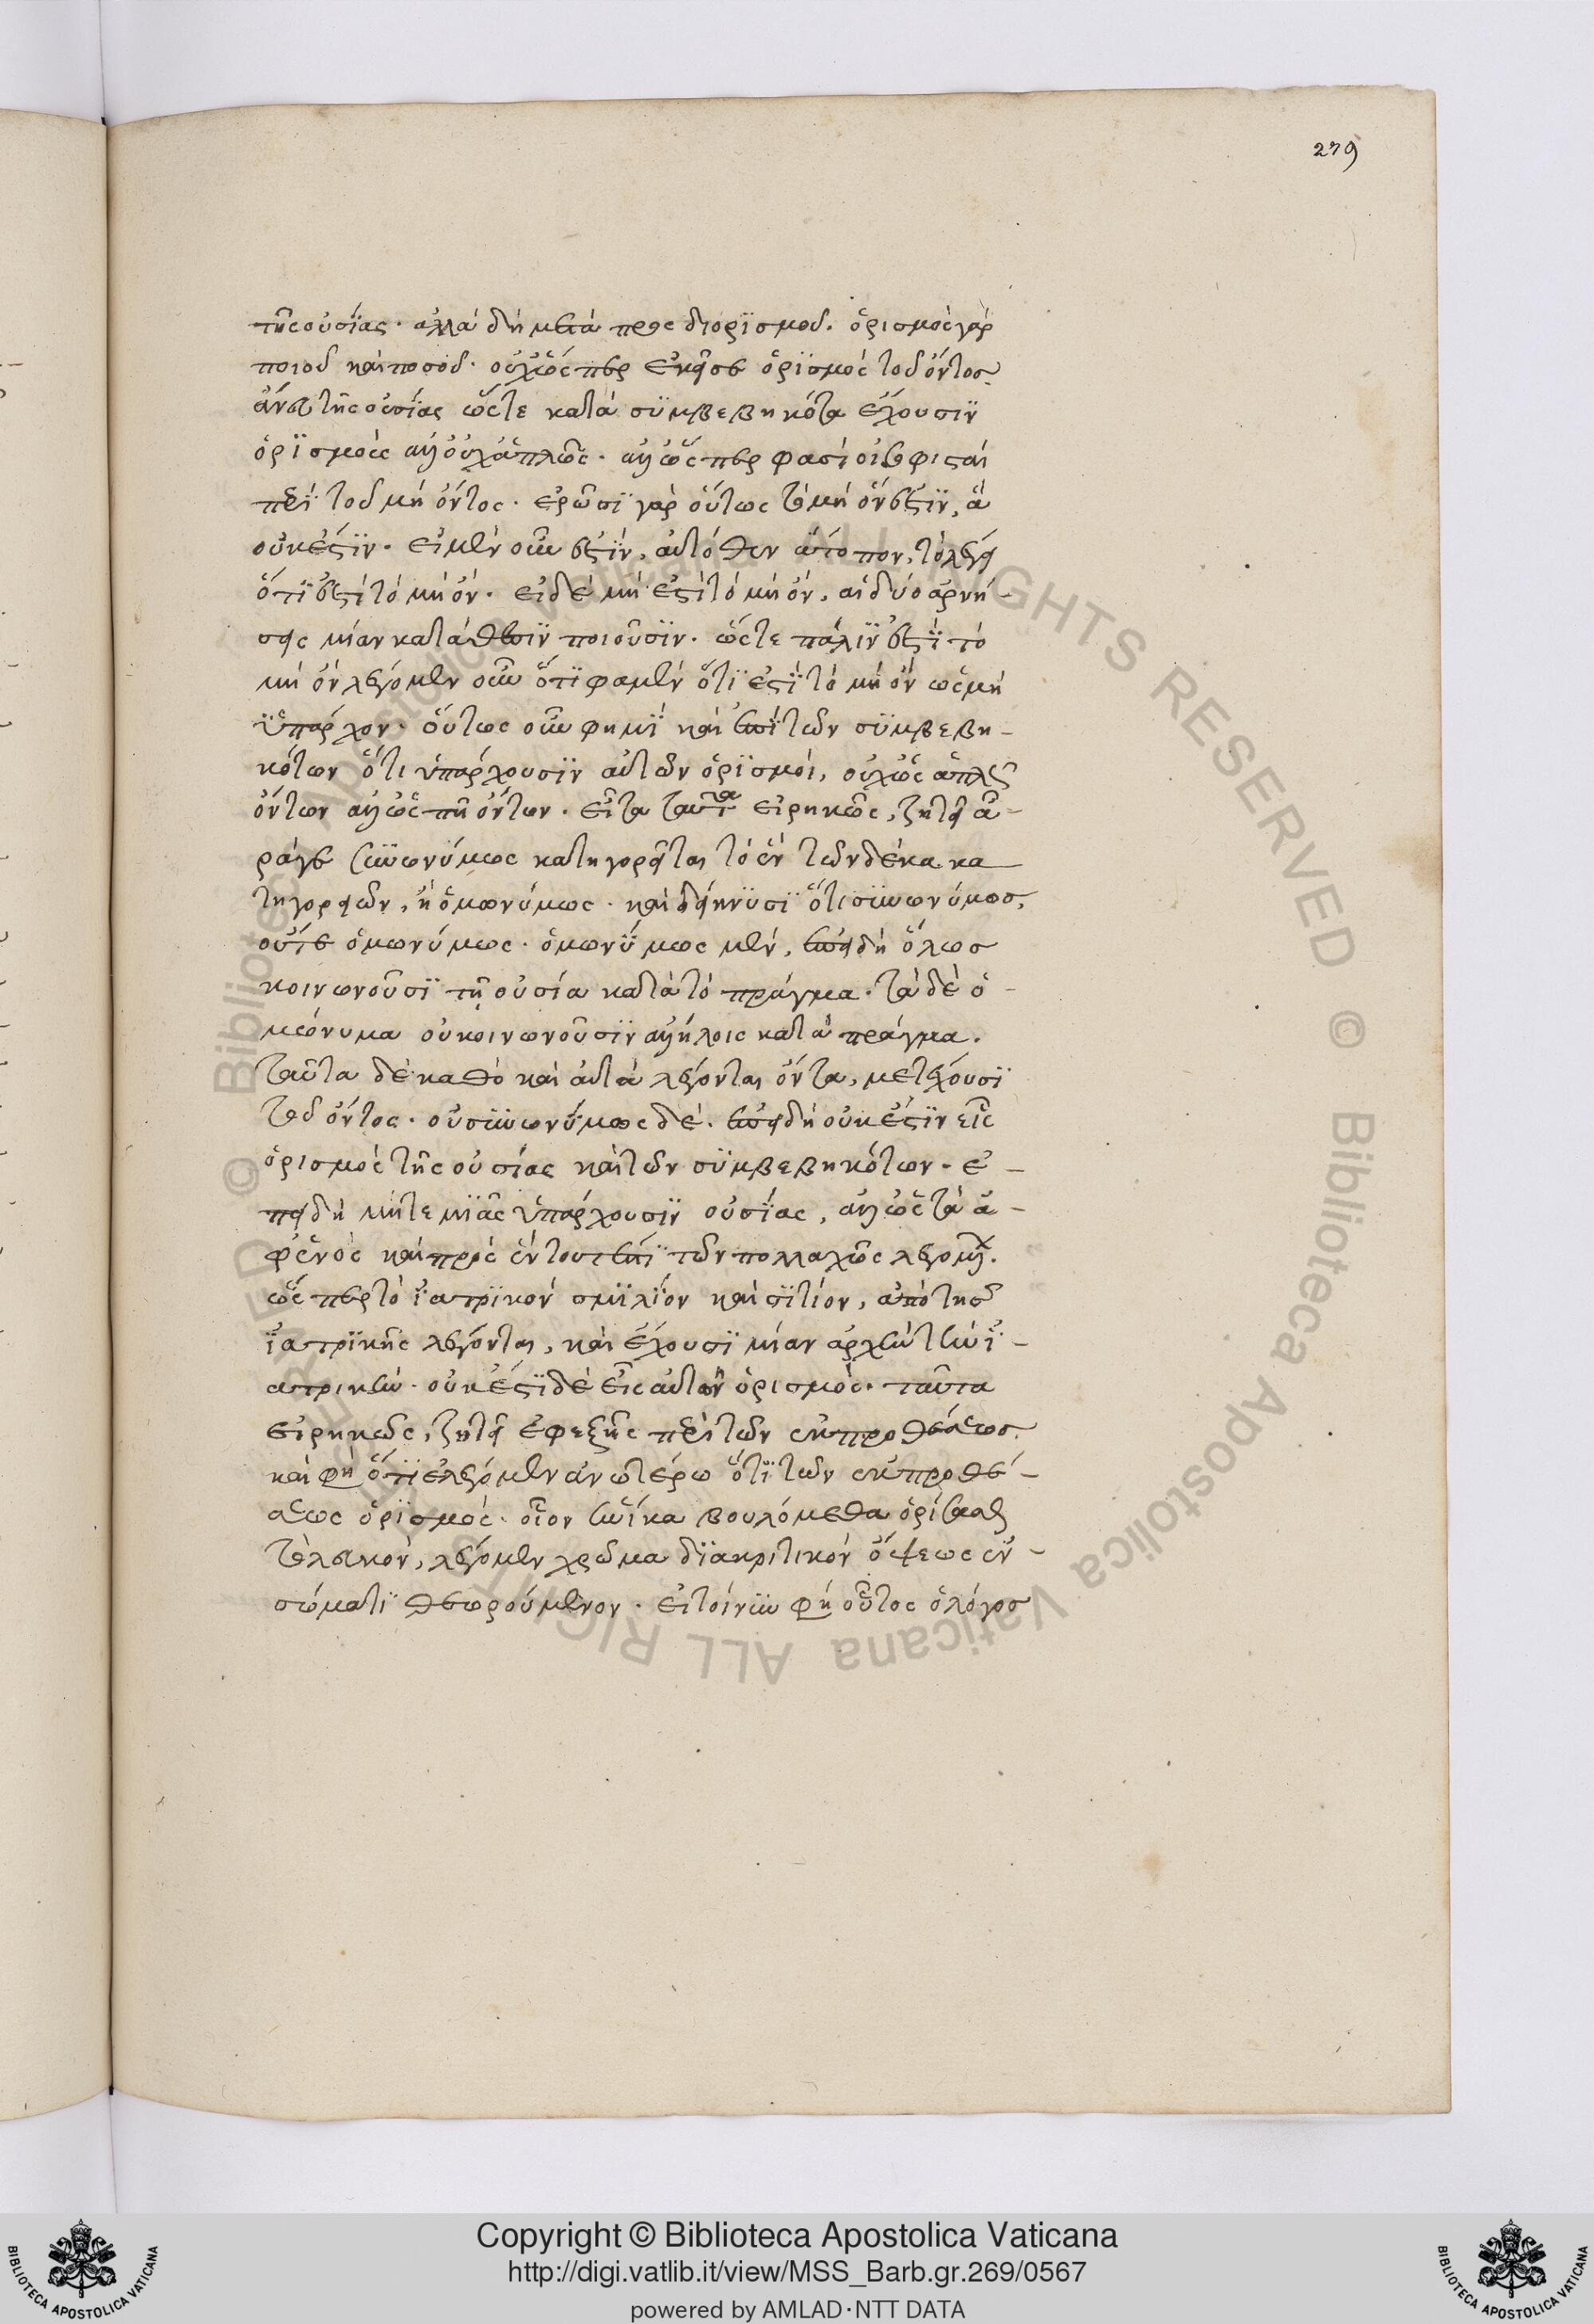 279
τῆς οὐσίας. ἀλλὰ δὴ μετὰ προσδιορϊσμοῦ. ὁρισμὸς γὰρ
ποιοῦ καὶ ποσοῦ. οὐχ ὥσπερ ἐκεῖσε ὁρϊσμὸς τοῦ ὄντος
ἄνευ τῆς οὐσίας ὥστε κατὰ σϋμβεβηκότα ἔχουσϊν
ὁρϊσμοὺς ἀλλ' οὐχ ἁπλῶς. ἀλλ' ὥσπερ φασὶ οἱ σοφισταὶ
περὶ τοῦ μὴ ὄντος. ἐρῶσϊ γὰρ οὕτως τὸ μὴ ὄν ἐστϊν, ἢ
οὐκ ἔστϊν. εἰ μὲν οὖν ἐστϊν, αὐτόθεν ἄτοπον, τὸ λέγειν
ὅτϊ ἐστὶ τὸ μὴ ὄν. εἰ δὲ μὴ ἐστὶ τὸ μὴ ὄν, αἱ δύο ἀρνή-
σεις μίαν κατάθεσϊν ποιοῦσϊν. ὥστε πάλϊν ἐστϊ τὸ
μὴ ὄν λέγομεν οὖν ὅτϊ φαμὲν ὅτϊ ἐστϊ τὸ μὴ ὂν ὡς μὴ
ϋπάρχον. οὕτως οὖν φημϊ καὶ ἐπὶ τῶν σϋμβεβη-
κότων ὅτι ὑπάρχουσϊν αὐτῶν ὁρϊσμοὶ, οὐχ ὡς ἁπλῶς
ὄντων ἀλλ' ὡς πῆ ὄντων. εἶτα ταῦτα εἰρηκὼς, ζητεῖ ἆ-
ράγε συνωνύμως κατηγορεῖται τὸ ἓν τῶν δέκα κα
τηγορειῶν, ἢ ὁμωνύμως. καὶ δείκνυσϊ ὅτι οὔτε συνωνύμως,
οὔτε ὁμωνύμως. ὁμωνύμως μὲν, ἐπειδὴ ὅλως
κοινωνοῦσϊ τῇ οὐσία κατὰ τὸ πρᾶγμα. τὰ δὲ ὁ-
μώνυμα οὐ κοινωνοῦσϊν ἀλλήλοις κατὰ πρᾶγμα.
ταῦτα δὲ καθὸ καὶ αὐτὰ λέγονται ὄντα, μετέχουσϊ
τοῦ ὄντος. οὐ συνωνύμως δὲ. ἐπειδὴ οὐκ ἔστϊν εἷς
ὁρισμὸς τῆς οὐσίας καὶ τῶν σϋμβεβηκότων. ἐ-
πειδὴ μήτε μϊᾶς ὑπάρχουσϊν οὐσίας, ἀλλ' ὡς τὰ ἀ-
φ' ἑνὸς καὶ πρὸς ἓν τουτέστϊ τῶν πολλαχῶς λεγομένων.
ὥσπερ τὸ ἰατρϊκὸν σμϊλίον καὶ σϊτίον, ἀπὸ τῆς
ἰατρϊκῆς λέγονται, καὶ ἔχουσϊ μίαν ἀρχὴν τὴν ἰ-
ατρικήν. οὐκ ἔστϊ δὲ εἷς αὐτῶν ὁρισμὸς. ταῦτα
εἰρηκὼς, ζητεῖ ἐφεξῆς περὶ τῶν ἐκ προσθέσεως.
καὶ φη ὅτϊ ἐλέγομεν ἀνωτέρω ὅτϊ τῶν ἐκ προσθέ-
σεως ὁρϊσμὸς. οἷον ἡνίκα βουλόμεθα ὁρίσασθαι
τὸ λευκὸν, λέγομεν χρῶμα δϊακριτικὸν ὄψεως ἐν
σώματϊ θεωρούμενον. εἰ τοίνυν φη οὗτος ὁ λόγος
Copyright © Biblioteca Apostolica Vaticana
http://digi.vatlib.it/view/MSS_Barb.gr.269/0567
powered by AMLAD·NTT DATA